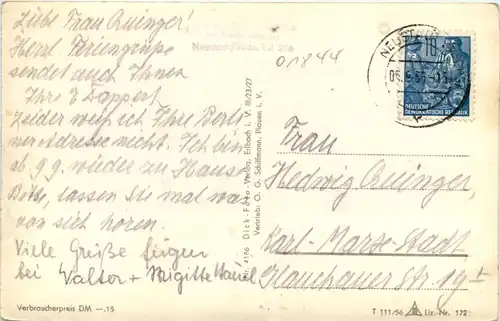 Liebe Frau Quinger!
Herzl. Feriengrüße
sendet auch Ihnen
Ihre E. Tappert
Leider weiß ich Ihre Berli-
ner Adresse nicht. Ich bin
ab 9.9. wieder zu Hause
Bitte, lassen Sie mal was
von sich hören.
Viele Grüße fügen
bei Walter + Brigitte
01844
10
DEUTSCHE
DEMOKRATISCHE REPUBLIK
Frau
Hedwig Quinger,
Karl-Marx-Stadt
Glauchauer Str. 19
Nr. 4186 Dick-Foto-Verlag, Erlbach i. V. III/23/27
Vertrieb: O. G. Schiffmann, Plauen i. V.
Verbraucherpreis DM —.15
T 111/56 Liz.-Nr. 172